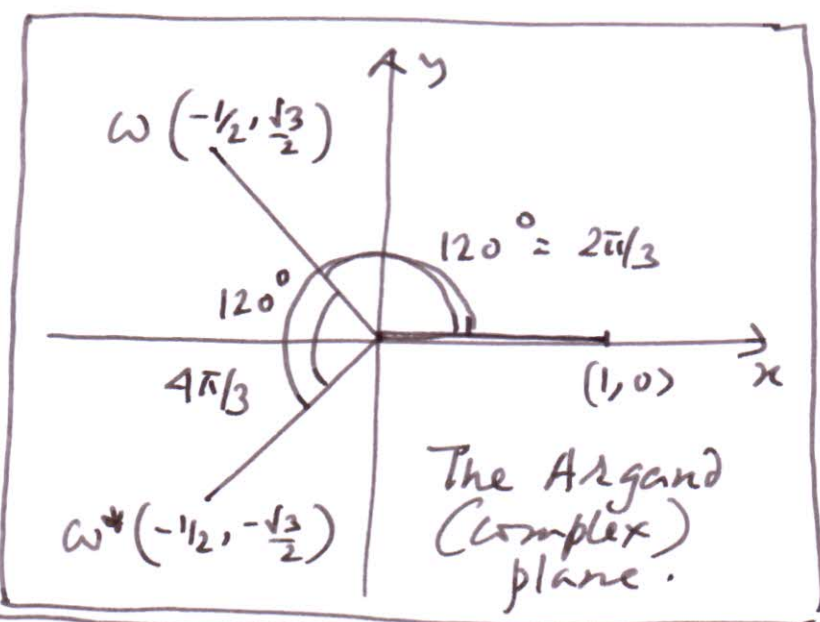 y
ω (-1/2, √3/2)
120° = 2π/3
120°
4π/3
(1,0)
x
ω* (-1/2, -√3/2)
The Argand
(complex)
plane.